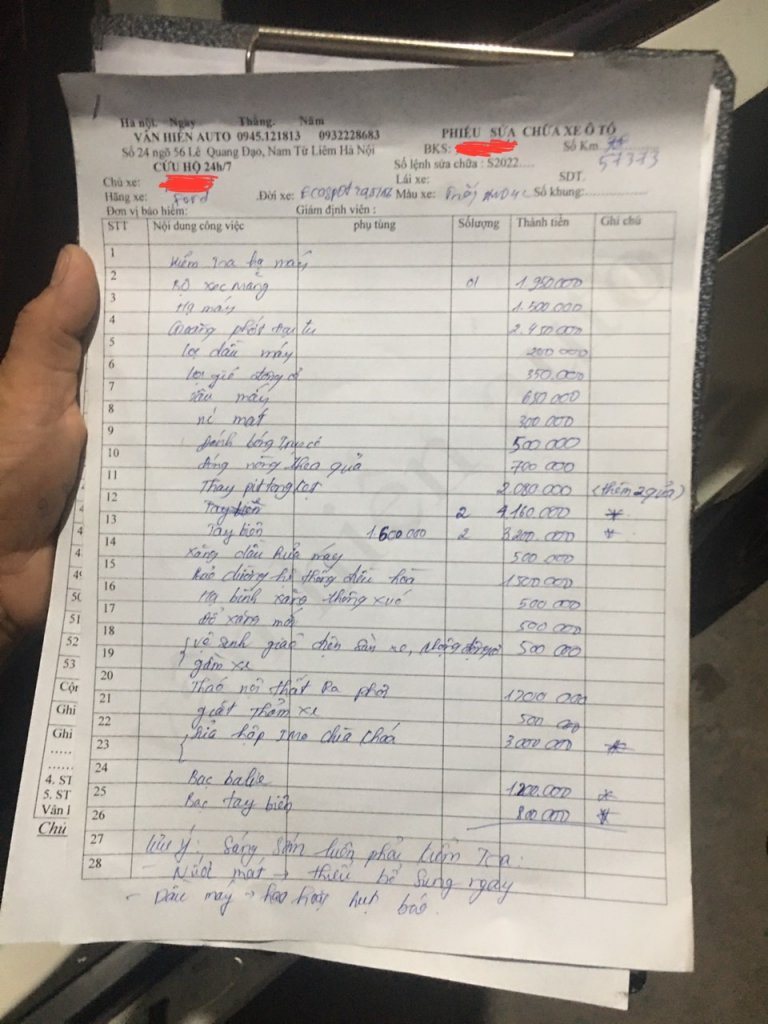 Hà nội, Ngày Tháng. Năm
VÂN HIÊN AUTO 0945.121813 0932228683
Số 24 ngõ 56 Lê Quang Đạo, Nam Từ Liêm Hà Nội
CỨU HỘ 24h/7
PHIẾU SỬA CHỮA XE Ô TÔ
BKS: Số Km
57373
Số lệnh sửa chữa : S2022....
Chủ xe: Lái xe: SDT.
Hãng xe: Ford Đời xe: Màu xe: Số khung:
Đơn vị bảo hiểm: Giám định viên :
STT Nội dung công việc phụ tùng Số lượng Thành tiền Ghi chú
1 Kiểm tra hạ máy
2 Bộ xec măng 01 1.950.000
3 Hạ máy 1.500.000
4 Gioăng phớt đại tu 2.450.000
5 Lọc dầu máy 200.000
6 Lọc gió động cơ 350.000
7 Dầu máy 650.000
8 ní mát 300.000
9 Đánh bóng trục cơ 500.000
10 đóng nòng theo quả 700.000
11 Thay pittong 2.080.000 (thêm 2 quả)
12 Tay biên 2 4.160.000 *
13 Tay biên 1.600.000 2 3.200.000 *
14 xăng dầu rửa máy 500.000
15 Bảo dưỡng hệ thống điều hòa 1500.000
16 Hạ bình xăng thông xúc 500.000
17 Đổ xăng mới 500.000
18 vệ sinh giao diện sàn xe, 500.000
19 gầm xe
20 Tháo nội thất ra phơi 1.200.000
21 giặt thảm xe 500.000
22 hộp chìa khoá 3.000.000 *
23
24 Bạc balie 1.200.000 *
25 Bạc tay biên 800.000 *
26
27 Lưu ý: Sáng sớm luôn phải kiểm tra:
28 - Nước mát → thiếu bổ sung ngay
- Dầu máy → hao hoặc hụt báo.
4. ST
5. ST
Vân
Chủ